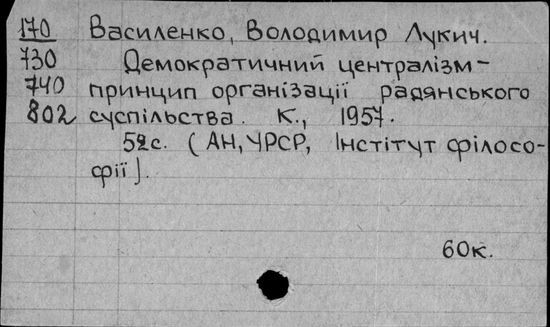 170 Василенко, Володимир Лукич.
730 Демократичний централізм-
740 принцип організації радянського
802 суспільства. К., 1957.
52с. (АН, УРСР, Інстітут філосо-
фії).
60к.